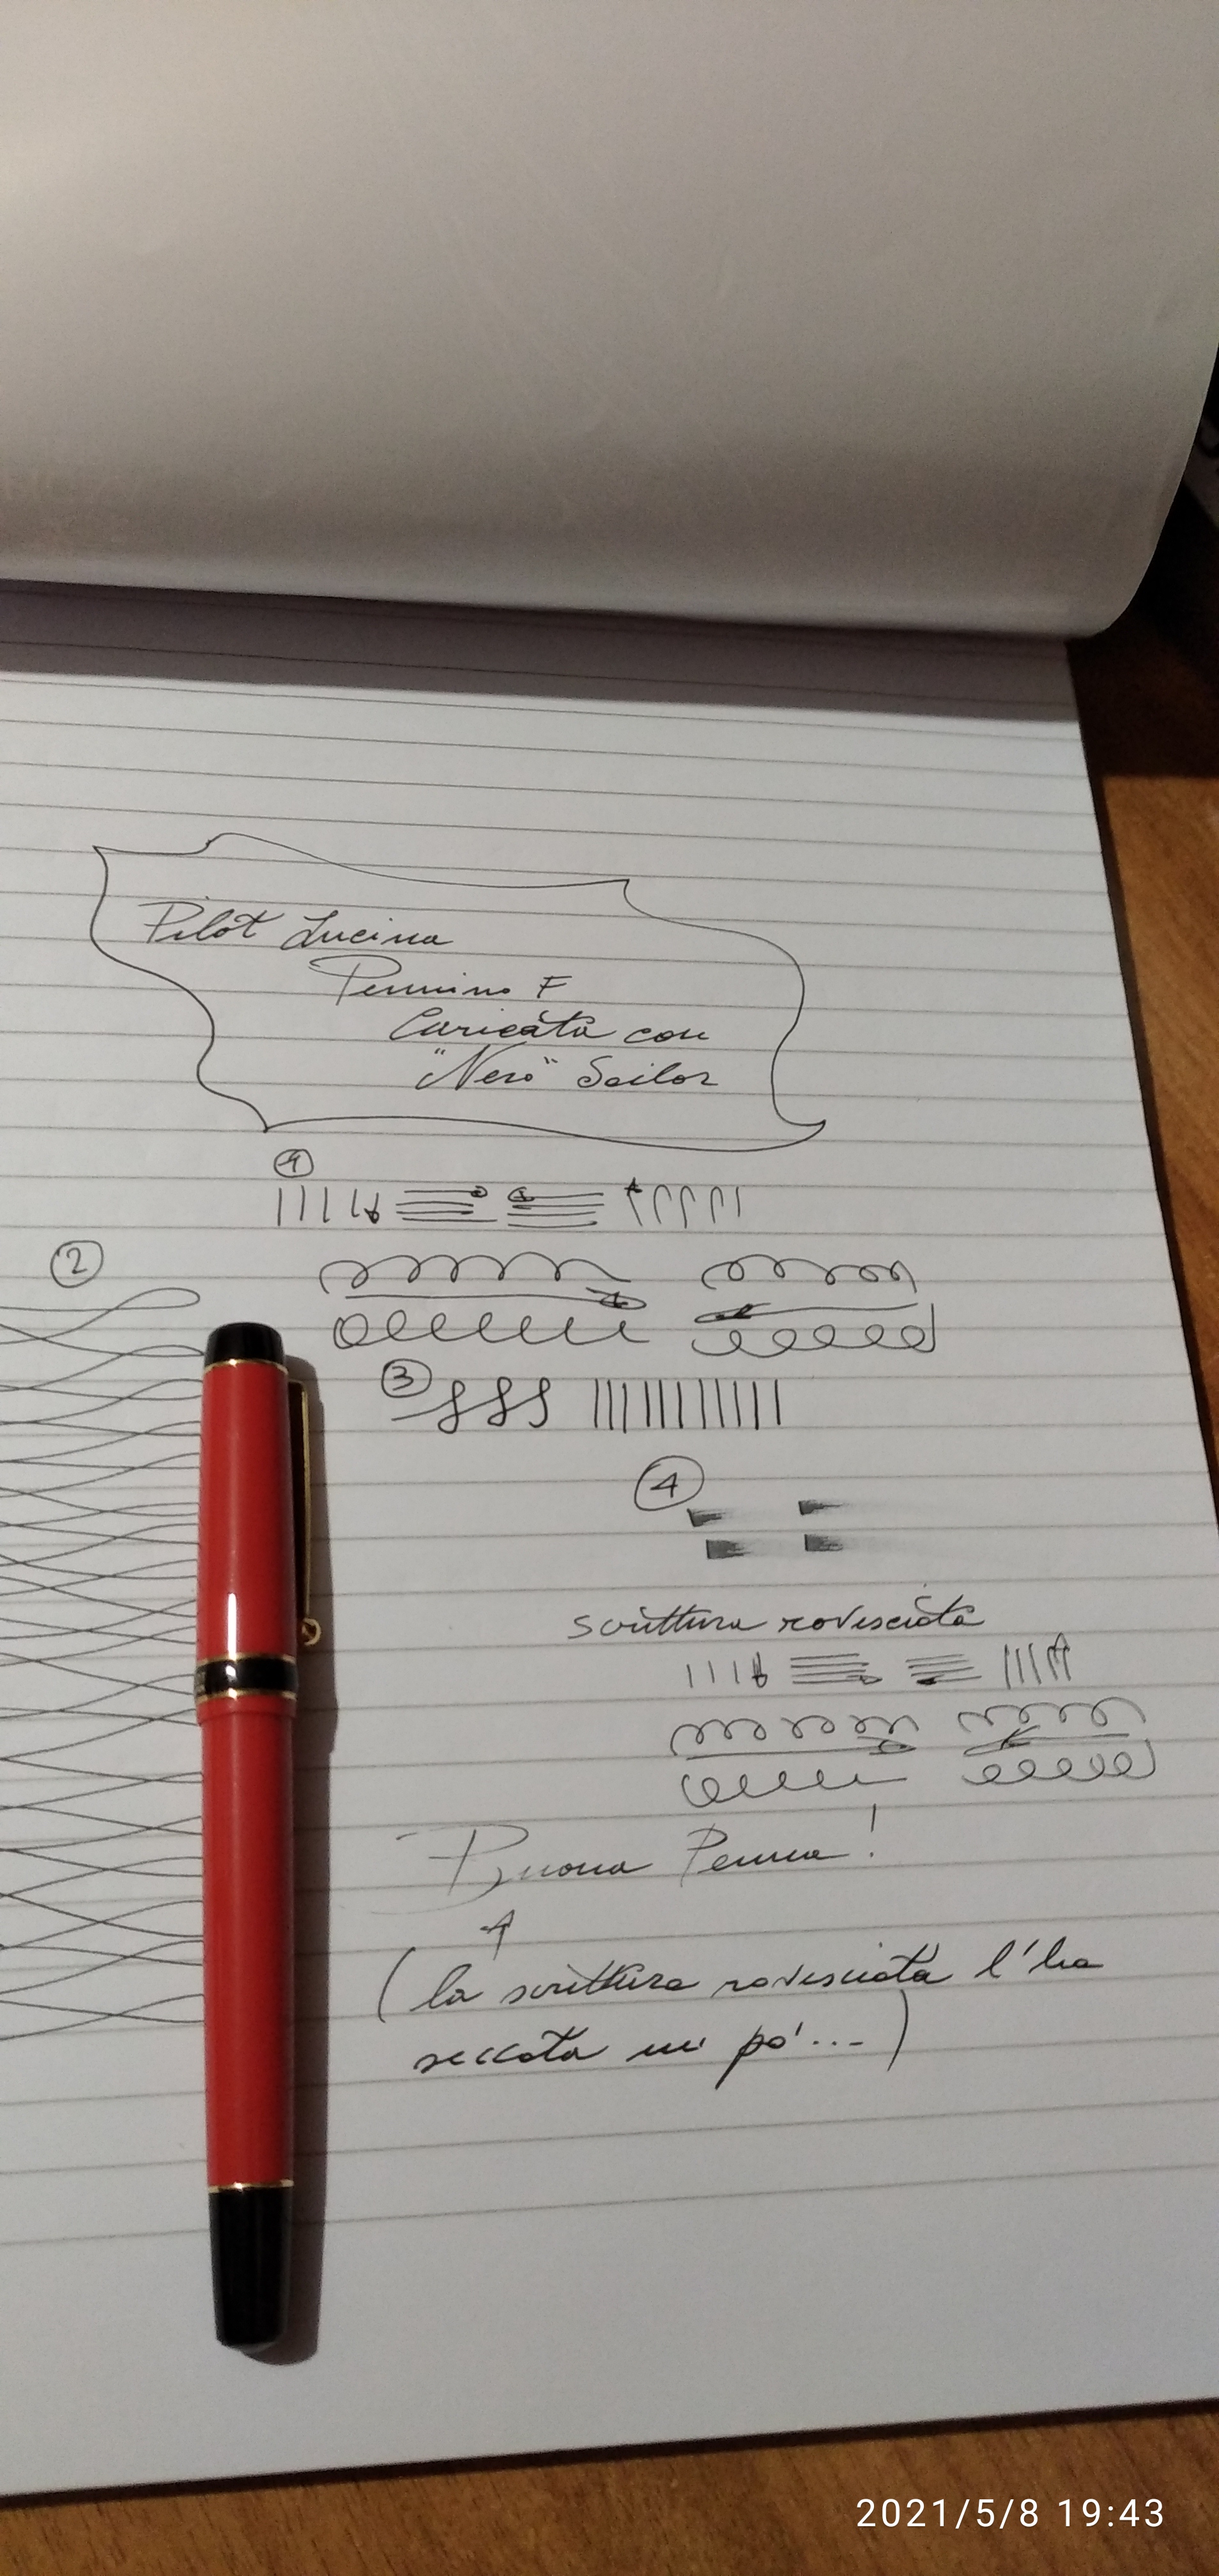 Pilot Lucina
Pennino F
Caricata con
"Nero" Sailor
1
2
3
4
scrittura rovesciata
Buona Penna!
(la scrittura rovesciata l'ha
seccata un pò...)
2021/5/8 19:43